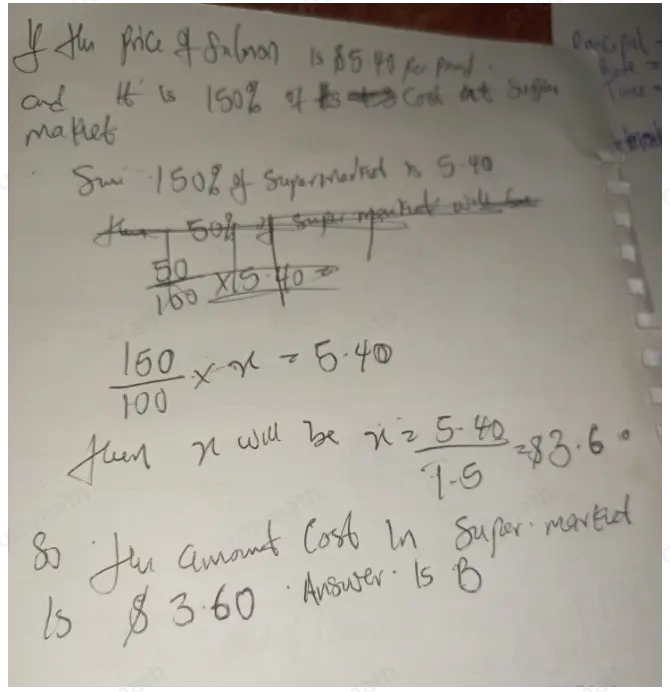 If the price of Salmon is $5.40 per pound.
and it is 150% of its Cost at Super
market
150% of Supermarket is 5.40
then 50% of super market will be
50
100 × 5.40 =
150
100 × x = 5.40
then x will be x = 5.40
1.5 = $3.6
So the amount Cost In Super market
Is $3.60. Answer Is B
Principal
Rate =
Time =